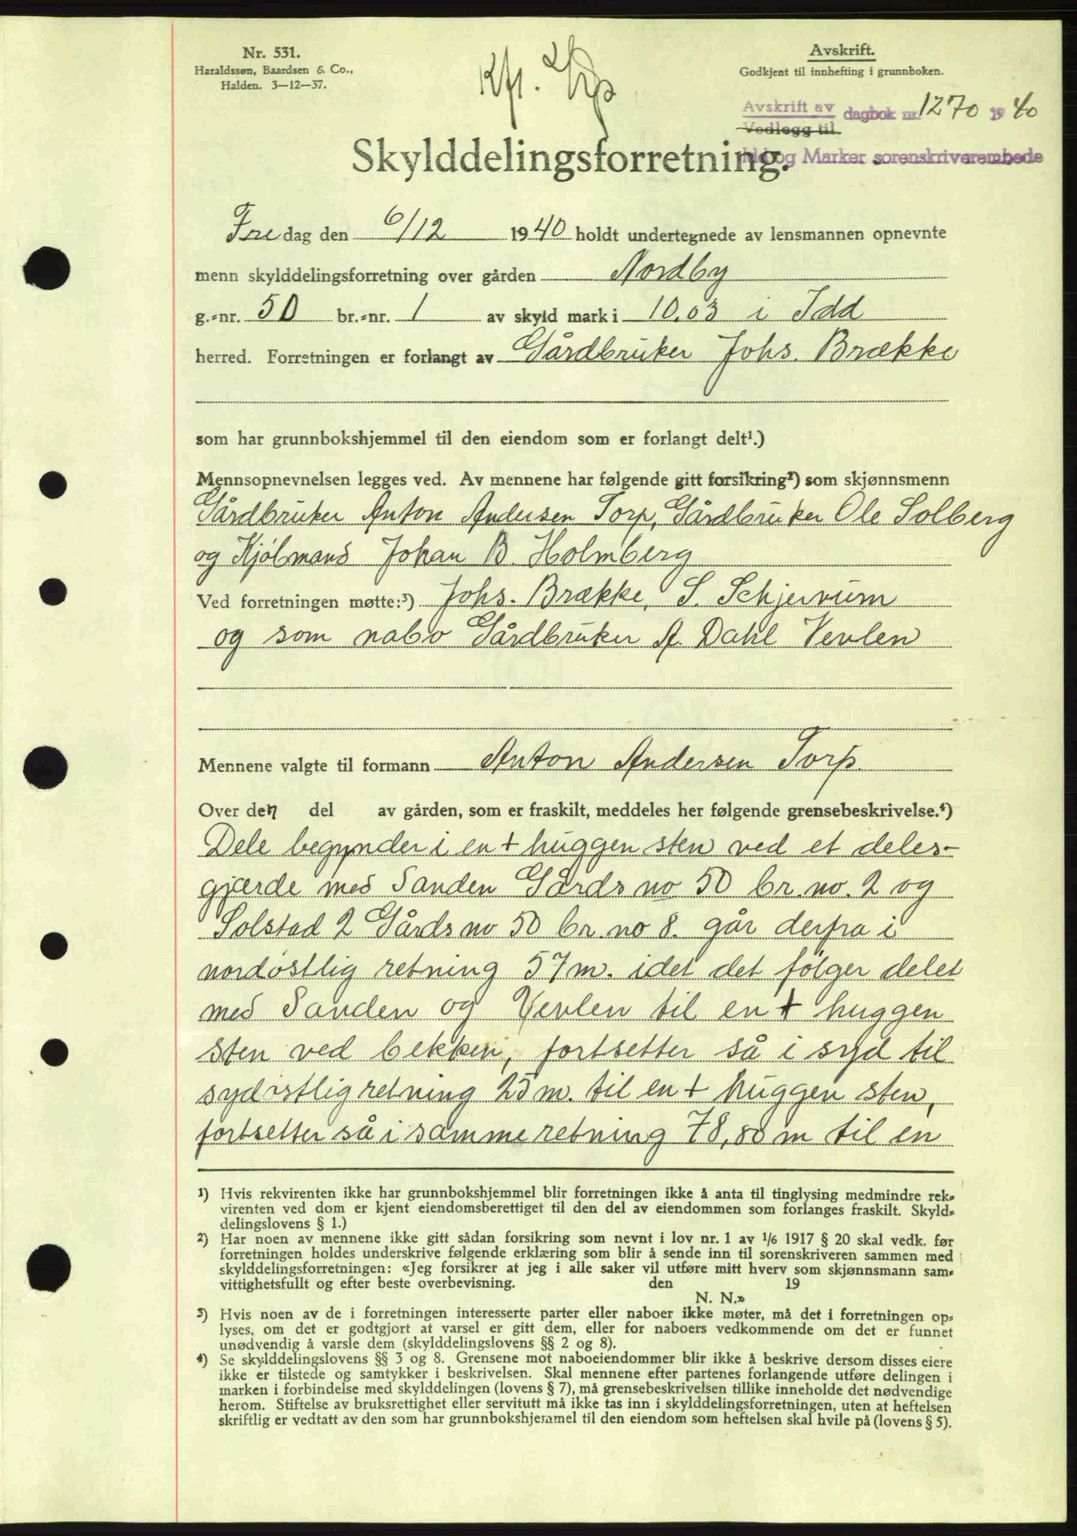 Nr. 531.
Haraldssøn, Baardsen & Co.,
Halden. 3—12—37.
Avskrift.
Godkjent til innhefting i grunnboken.
Avskrift av dagbok nr. 1270 1940
Vedlegg til
Idd og Marker sorenskriverembede
Skylddelingsforretning.
Fredag den 6/12 1940 holdt undertegnede av lensmannen opnevnte
menn skylddelingsforretning over gården Nordby
g.=nr. 50 br.=nr. 1 av skyld mark i 10,03 i Idd
herred. Forretningen er forlangt av Gårdbruker Johs. Brække
som har grunnbokshjemmel til den eiendom som er forlangt delt¹.)
Mennsopnevnelsen legges ved. Av mennene har følgende gitt forsikring²) som skjønnsmenn
Gårdbruker Anton Andersen Torp, Gårdbruker Ole Solberg
og Kjöbmand Johan B. Holmberg
Ved forretningen møtte:³) Johs. Brække, S. Schjervum
og som nabo Gårdbruker A. Dahl Vevlen
Mennene valgte til formann Anton Andersen Torp.
Over den del av gården, som er fraskilt, meddeles her følgende grensebeskrivelse.⁴)
Dele begynder i en + huggen sten ved et deles-
gjærde med Sanden Gårds no 50 br. no. 2 og
Solstad 2 Gårds no 50 br. no 8. går derfra i
nordöstlig retning 57 m. idet det fölger delet
med Sanden og Vevlen til en + huggen
sten ved bekken, fortsetter så i syd til
sydöstlig retning 25 m. til en + huggen sten,
fortsetter så i samme retning 78,80 m til en
¹) Hvis rekvirenten ikke har grunnbokshjemmel blir forretningen ikke å anta til tinglysing medmindre rek=
virenten ved dom er kjent eiendomsberettiget til den del av eiendommen som forlanges fraskilt. Skyld=
delingslovens § 1.)
²) Har noen av mennene ikke gitt sådan forsikring som nevnt i lov nr. 1 av 1/6 1917 § 20 skal vedk. før
forretningen holdes underskrive følgende erklæring som blir å sende inn til sorenskriveren sammen med
skylddelingsforretningen: «Jeg forsikrer at jeg i alle saker vil utføre mitt hverv som skjønnsmann sam=
vittighetsfullt og efter beste overbevisning. den 19
N. N.»
³) Hvis noen av de i forretningen interesserte parter eller naboer ikke møter, må det i forretningen op=
lyses, om det er godtgjort at varsel er gitt dem, eller for naboers vedkommende om det er funnet
unødvendig å varsle dem (skylddelingslovens §§ 2 og 8).
⁴) Se skylddelingslovens §§ 3 og 8. Grensene mot naboeiendommer blir ikke å beskrive dersom disses eiere
ikke er tilstede og samtykker i beskrivelsen. Skal mennene efter partenes forlangende utføre delingen i
marken i forbindelse med skylddelingen (lovens § 7), må grensebeskrivelsen tillike inneholde det nødvendige
herom. Stiftelse av bruksrettighet eller servitutt må ikke tas inn i skylddelingsforretningen, uten at heftelsen
skriftlig er vedtatt av den som har grunnbokshjemmel til den eiendom som heftelsen skal hvile på (lovens § 5).